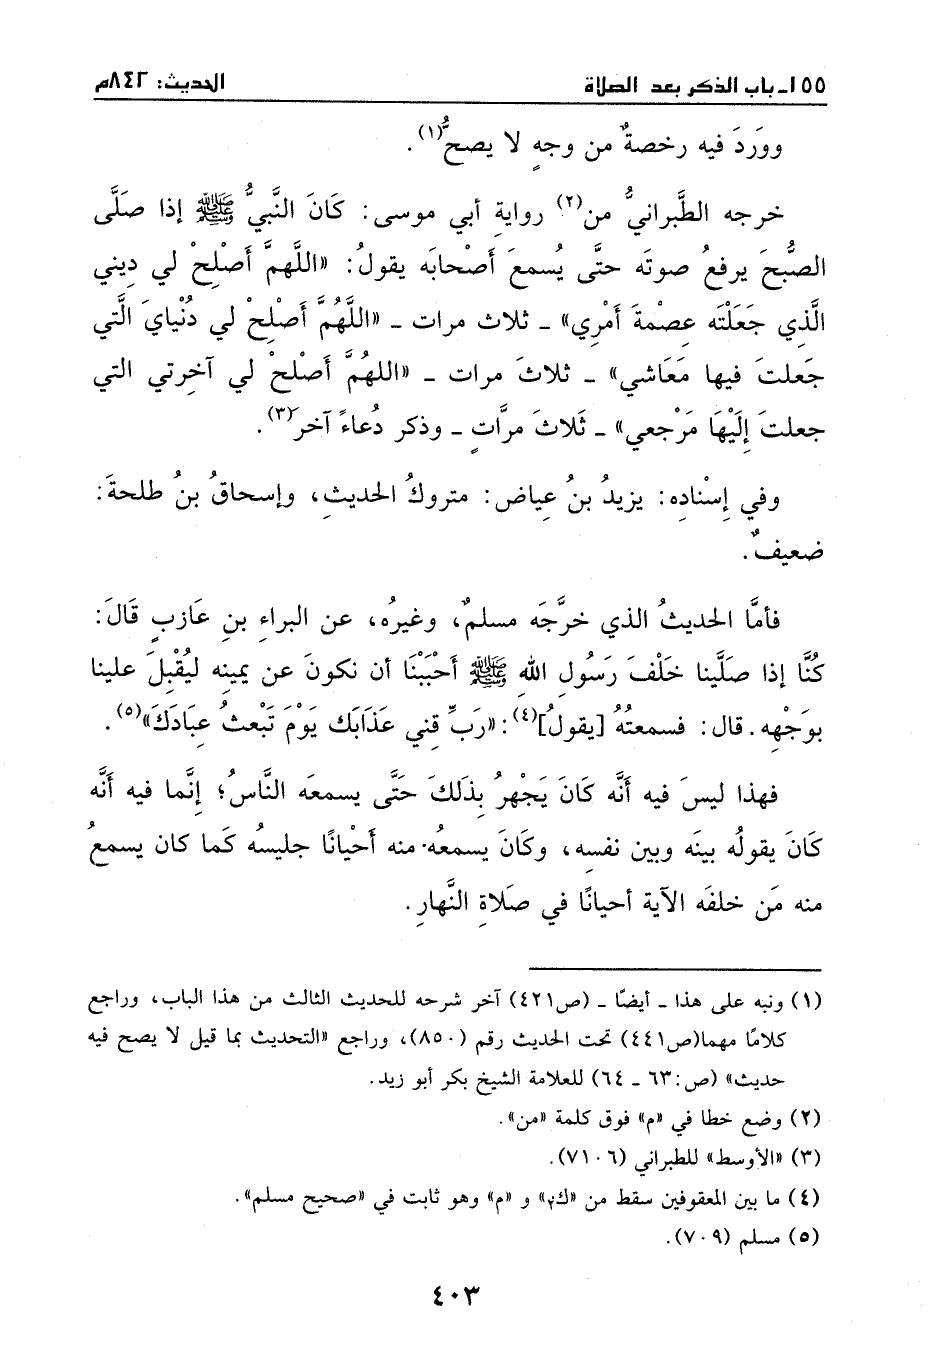 ١٥٥ - باب الذكر بعد الصلاة
الحديث: ٨٤٢م
ووَرَدَ فيه رخصةٌ من وجهٍ لا يصحُّ(١).
خرجه الطَّبرانيُّ من(٢) روايةِ أبي موسى: كَانَ النَّبيُّ ﷺ إذا صَلَّى
الصُّبحَ يرفعُ صوتَه حتَّى يُسمعَ أَصْحابَه يقولُ: «اللَّهمَّ أَصْلِحْ لي دِيني
الَّذِي جَعَلْتَه عِصْمةَ أَمْرِي» ـ ثلاث مرات ـ «اللَّهُمَّ أَصْلِحْ لي دُنْيايَ الَّتي
جَعلتَ فيها مَعَاشي» ـ ثلاثَ مرات ـ «اللهُمَّ أَصْلحْ لي آخرتي التي
جعلتَ إِلَيْهَا مَرْجعي» ـ ثَلاثَ مرَّاتٍ ـ وذكر دُعاءً آخرَ(٣).
وفي إِسْنادِه: يزيدُ بنُ عياض: متروكُ الحديثِ، وإسحاقُ بنُ طلحةَ:
ضعيفٌ.
فأمَّا الحديثُ الذي خرَّجَه مسلمٌ، وغيرُه، عن البراءِ بنِ عَازبٍ قَالَ:
كُنَّا إذا صَلَّينا خَلْفَ رَسُولِ اللهِ ﷺ أَحْبَبْنَا أن نكونَ عن يمينِه ليُقْبِلَ علينا
بوَجْهِه. قال: فسمعتُهُ [يقولُ](٤): «رَبِّ قِني عَذَابَك يَوْمَ تَبْعثُ عِبَادَكَ»(٥).
فهذا ليسَ فيه أنَّه كَانَ يَجْهرُ بِذَلكَ حَتَّى يسمعَه النَّاسُ؛ إنَّما فيه أَنَّه
كَانَ يقولُه بينَه وبين نفسِه، وكَانَ يسمعُه منه أَحْيانًا جليسُه كَما كان يسمعُ
منه مَن خلفَه الآية أحيانًا في صَلَاةِ النَّهارِ.
(١) ونبه على هذا ـ أيضًا ـ (ص٤٢١) آخر شرحه للحديث الثالث من هذا الباب، وراجع
كلامًا مهما(ص٤٤١) تحت الحديث رقم (٨٥٠)، وراجع «التحديث بما قيل لا يصح فيه
حديث» (ص:٦٣ ـ ٦٤) للعلامة الشيخ بكر أبو زيد.
(٢) وضع خطا في «م» فوق كلمة «من».
(٣) «الأوسط» للطبراني (٧١٠٦).
(٤) ما بين المعقوفين سقط من «ك٢» و «م» وهو ثابت في «صحيح مسلم».
(٥) مسلم (٧٠٩).
٤٠٣